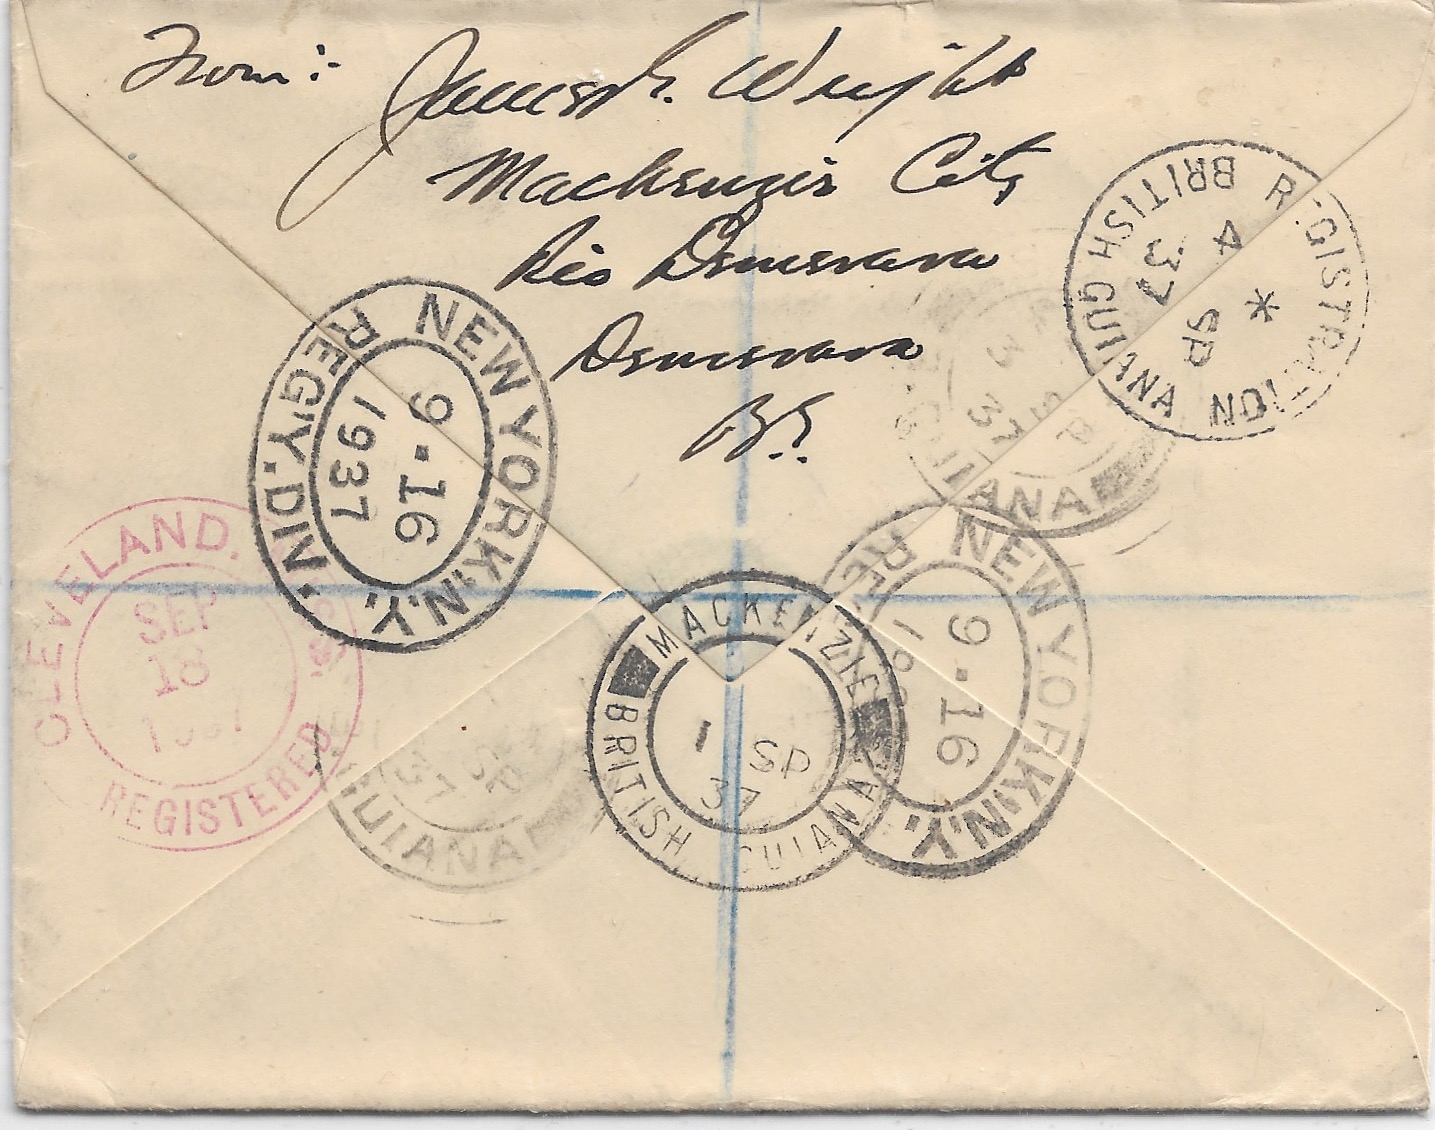 From:- James E. Wright
Mackenzie City
Rio Demerara
Demerara
B.G.
REGISTRATION
BRITISH GUIANA
*
4 SP
37
3 SP
37
GUIANA
NEW YORK, N.Y.
REG'Y. DIV.
9-16
1937
CLEVELAND,
SEP
18
REGISTERED
MACKENZIE
1 SP
37
BRITISH GUIANA
NEW YORK, N.Y.
9-16
SP
37
GUIANA